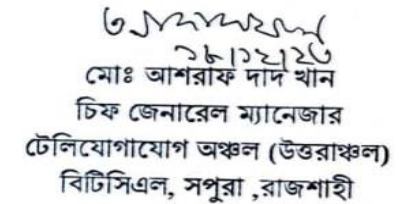 ১৮/১২/২৩
মোঃ আশরাফ দাদ খান
চিফ জেনারেল ম্যানেজার
টেলিযোগাযোগ অঞ্চল (উত্তরাঞ্চল)
বিটিসিএল, সপুরা ,রাজশাহী